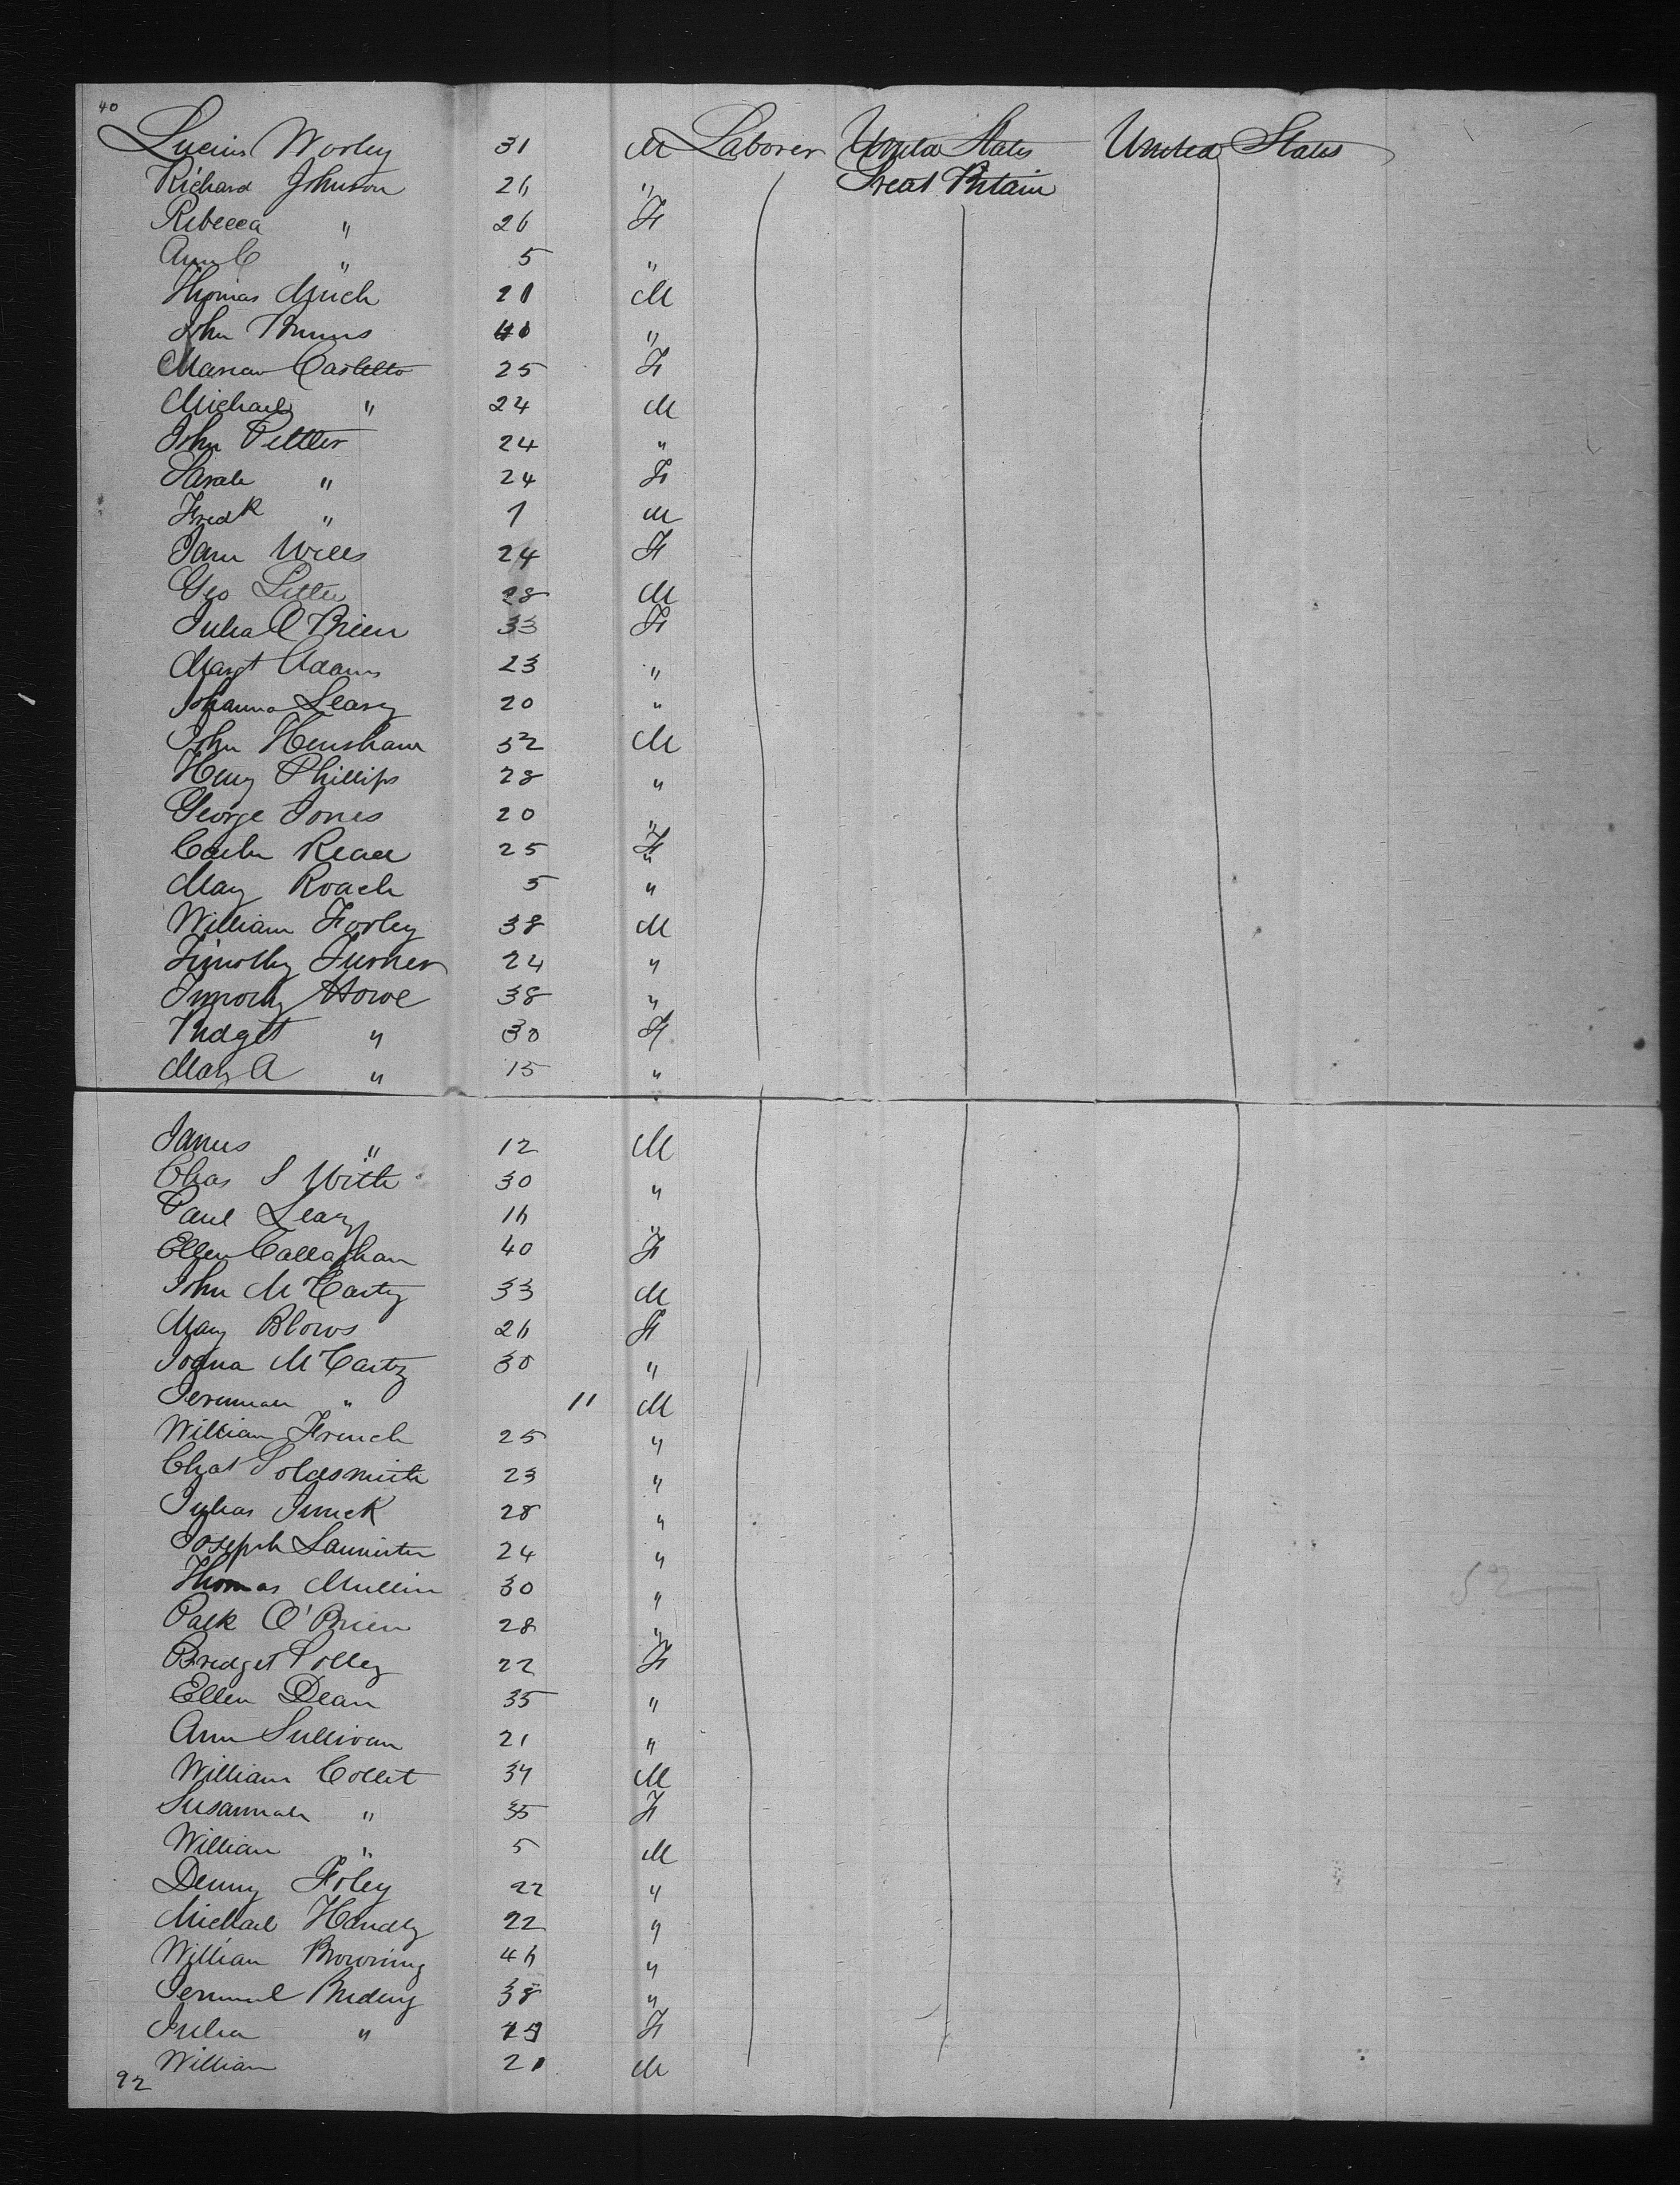 40
Lucius Worley 31 M Laborer United States United States
Richard Johnson 26 " Great Britain
Rebecca " 26 F
Ann C " 5 "
Thomas 21 M
John "
Castello 25 F
Michael " 24 M
John 24 "
Sarah " 24 F
Fredk " 1 M
Jane Wills 24 F
Geo 28 M
Julia O'Brien 33 F
Margt Adams 23 "
Johanna Leary 20 "
John Henshaw 32 M
Henry Phillips 28 "
George Jones 20 "
25 F
" 
Mary Roach 5 "
William Forley 38 M
Timothy Turner 24 "
Timothy Howe 38 "
Bridget " 30 F
Mary A " 15 "
James " 12 M
Chas S With 30 "
Paul Leary 16 "
Ellen Callaghan 40 F
John McCarty 33 M
Mary Blows 26 F
Joana McCarty 30 "
" 11 M
William French 25 "
Chas Goldsmith 23 "
Julias 28 "
Joseph 24 "
Thomas Mullin 30 "
Patk O'Brien 28 "
Bridget 22 F
Ellen Dean 35 "
Ann Sullivan 21 "
William Collet 34 M
Susannah " 35 F
William " 5 M
Denny Foley 22 "
Michael Handly 22 "
William Browning 46 "
38 "
Julia " F
William 21 M
92
52